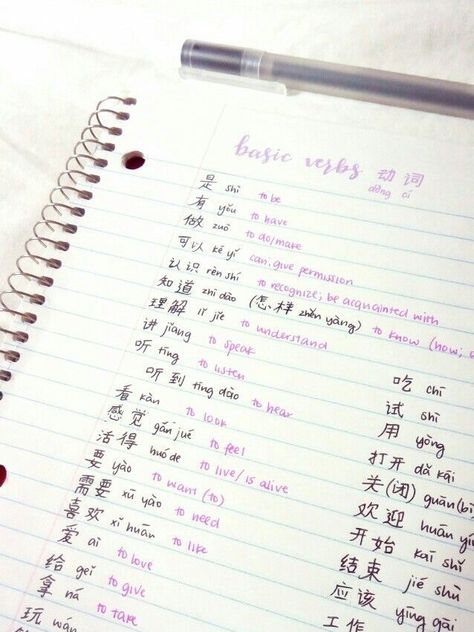 basic verbs 动词
dòng cí
是 shì to be
有 yǒu to have
做 zuò to do/make
可以 kě yǐ can; give permission
认识 rèn shí to recognize; be acquainted with
知道 zhī dào (怎样 zhěn yàng) to know (how;
理解 lǐ jiě to understand
讲 jiǎng to speak
听 tīng to listen
听到 tīng dào to hear
看 kàn to look
感觉 gǎn jué to feel
活得 huó de to live/is alive
要 yào to want (to)
需要 xū yào to need
喜欢 xǐ huān to like
爱 ài to love
给 gěi to give
拿 ná to take
玩 wán
吃 chī
试 shì
用 yòng
打开 dǎ kāi
关(闭) guān(bì
欢迎 huān yí
开始 kāi shǐ
结束 jié shù
应该 yīng gāi
工作